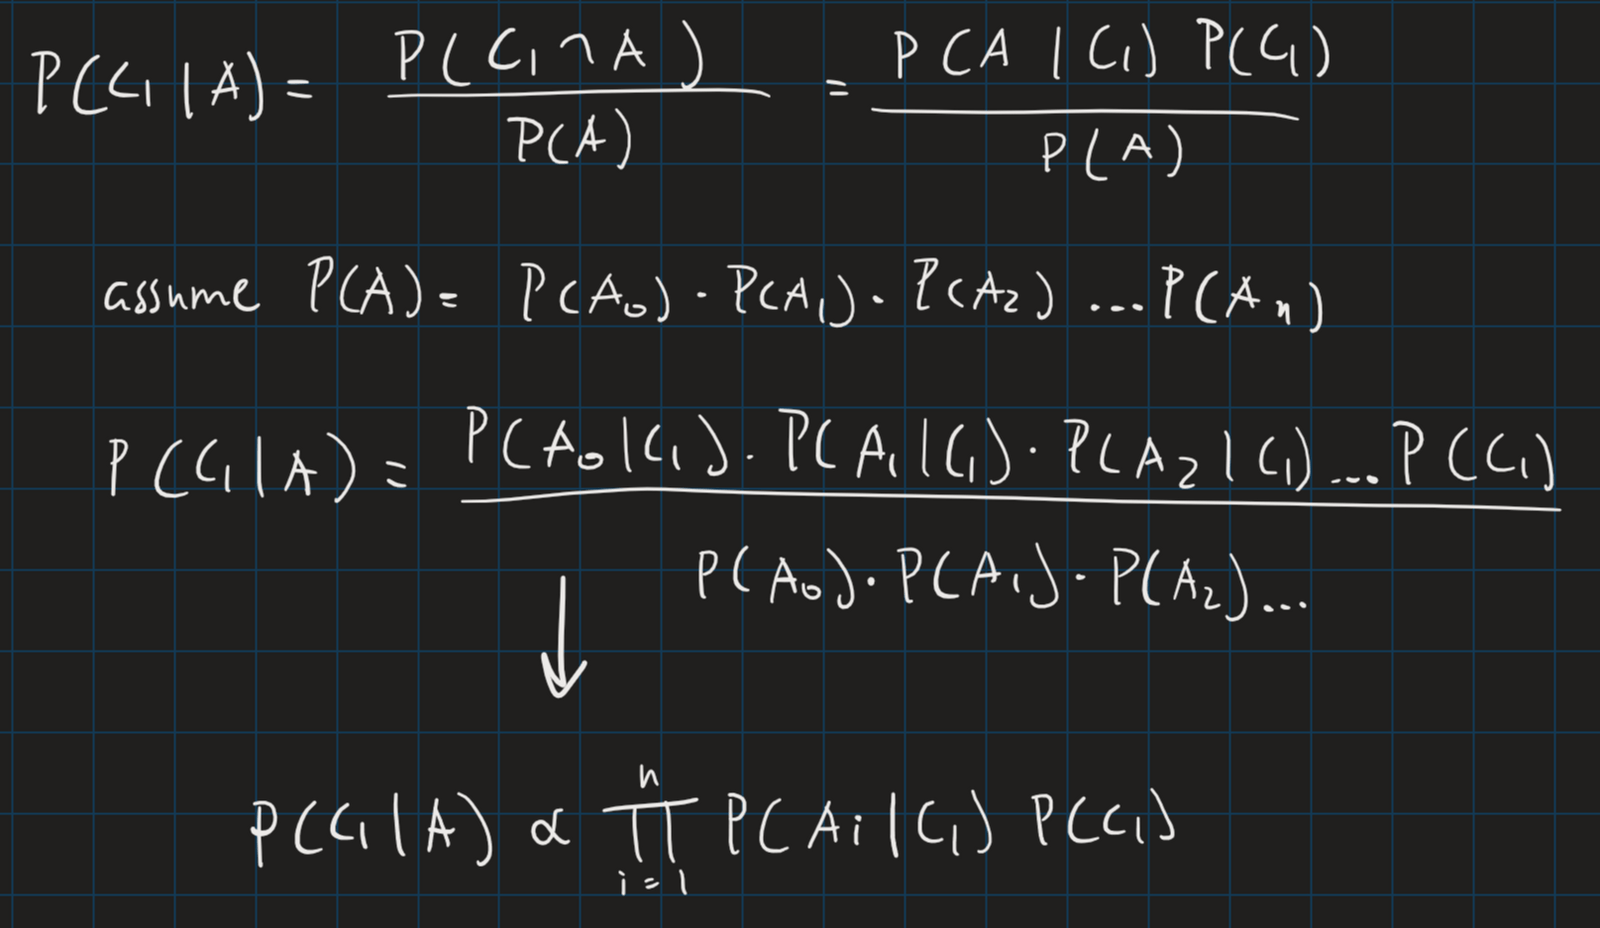 P(C₁ | A) = P(C₁ ∩ A) / P(A) = P(A | C₁) P(C₁) / P(A)
assume P(A) = P(A₀) · P(A₁) · P(A₂) ... P(Aₙ)
P(C₁ | A) = P(A₀ | C₁) · P(A₁ | C₁) · P(A₂ | C₁) ... P(C₁) / P(A₀) · P(A₁) · P(A₂) ...
↓
P(C₁ | A) ∝ ∏ᵢ₌₁ⁿ P(Ai | C₁) P(C₁)